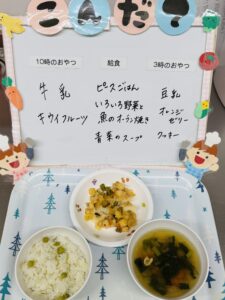 こんだて
10時のおやつ
牛乳
キウイフルーツ
給食
ピースごはん
いろいろ野菜と
魚のオーブン焼き
青菜のスープ
3時のおやつ
豆乳
オレンジ
ゼリー
クッキー